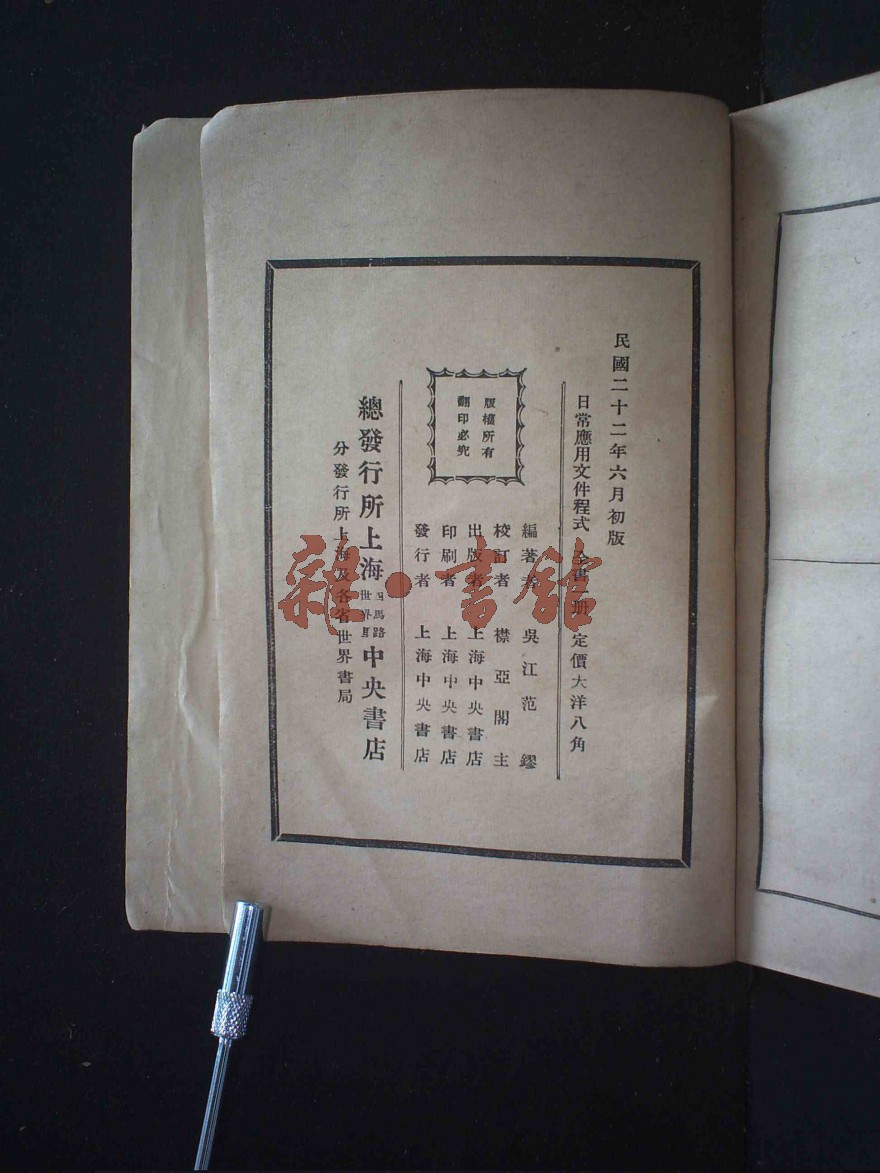 民國二十二年六月初版
日常應用文件程式 全書一册 定價大洋八角
版權所有
翻印必究
編著者 吳江范鏐
校訂者 襟亞閣主
出版者 上海中央書店
印刷者 上海中央書店
發行者 上海中央書店
總發行所上海四馬路世界里中央書店
分發行所上海及各省世界書局
雜·書館